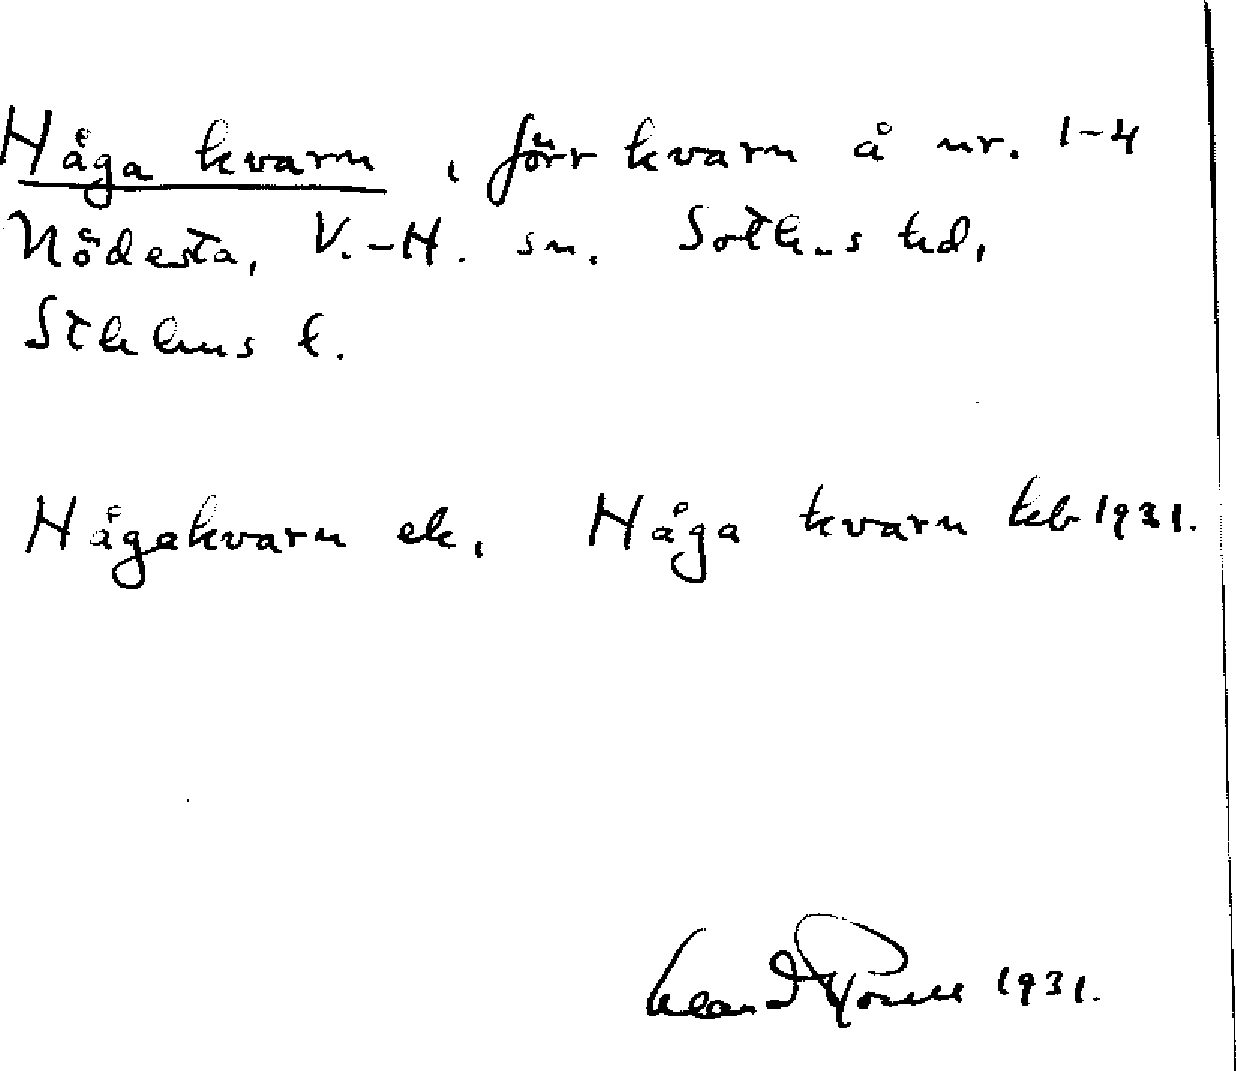 Håga kvarn, förr kvarn å nr. 1-4
Nödesta, V.-H. sn. Soth.s hd,
Sthlms l.
Hågakvarn ek, Håga kvarn kb 1931.
1931.